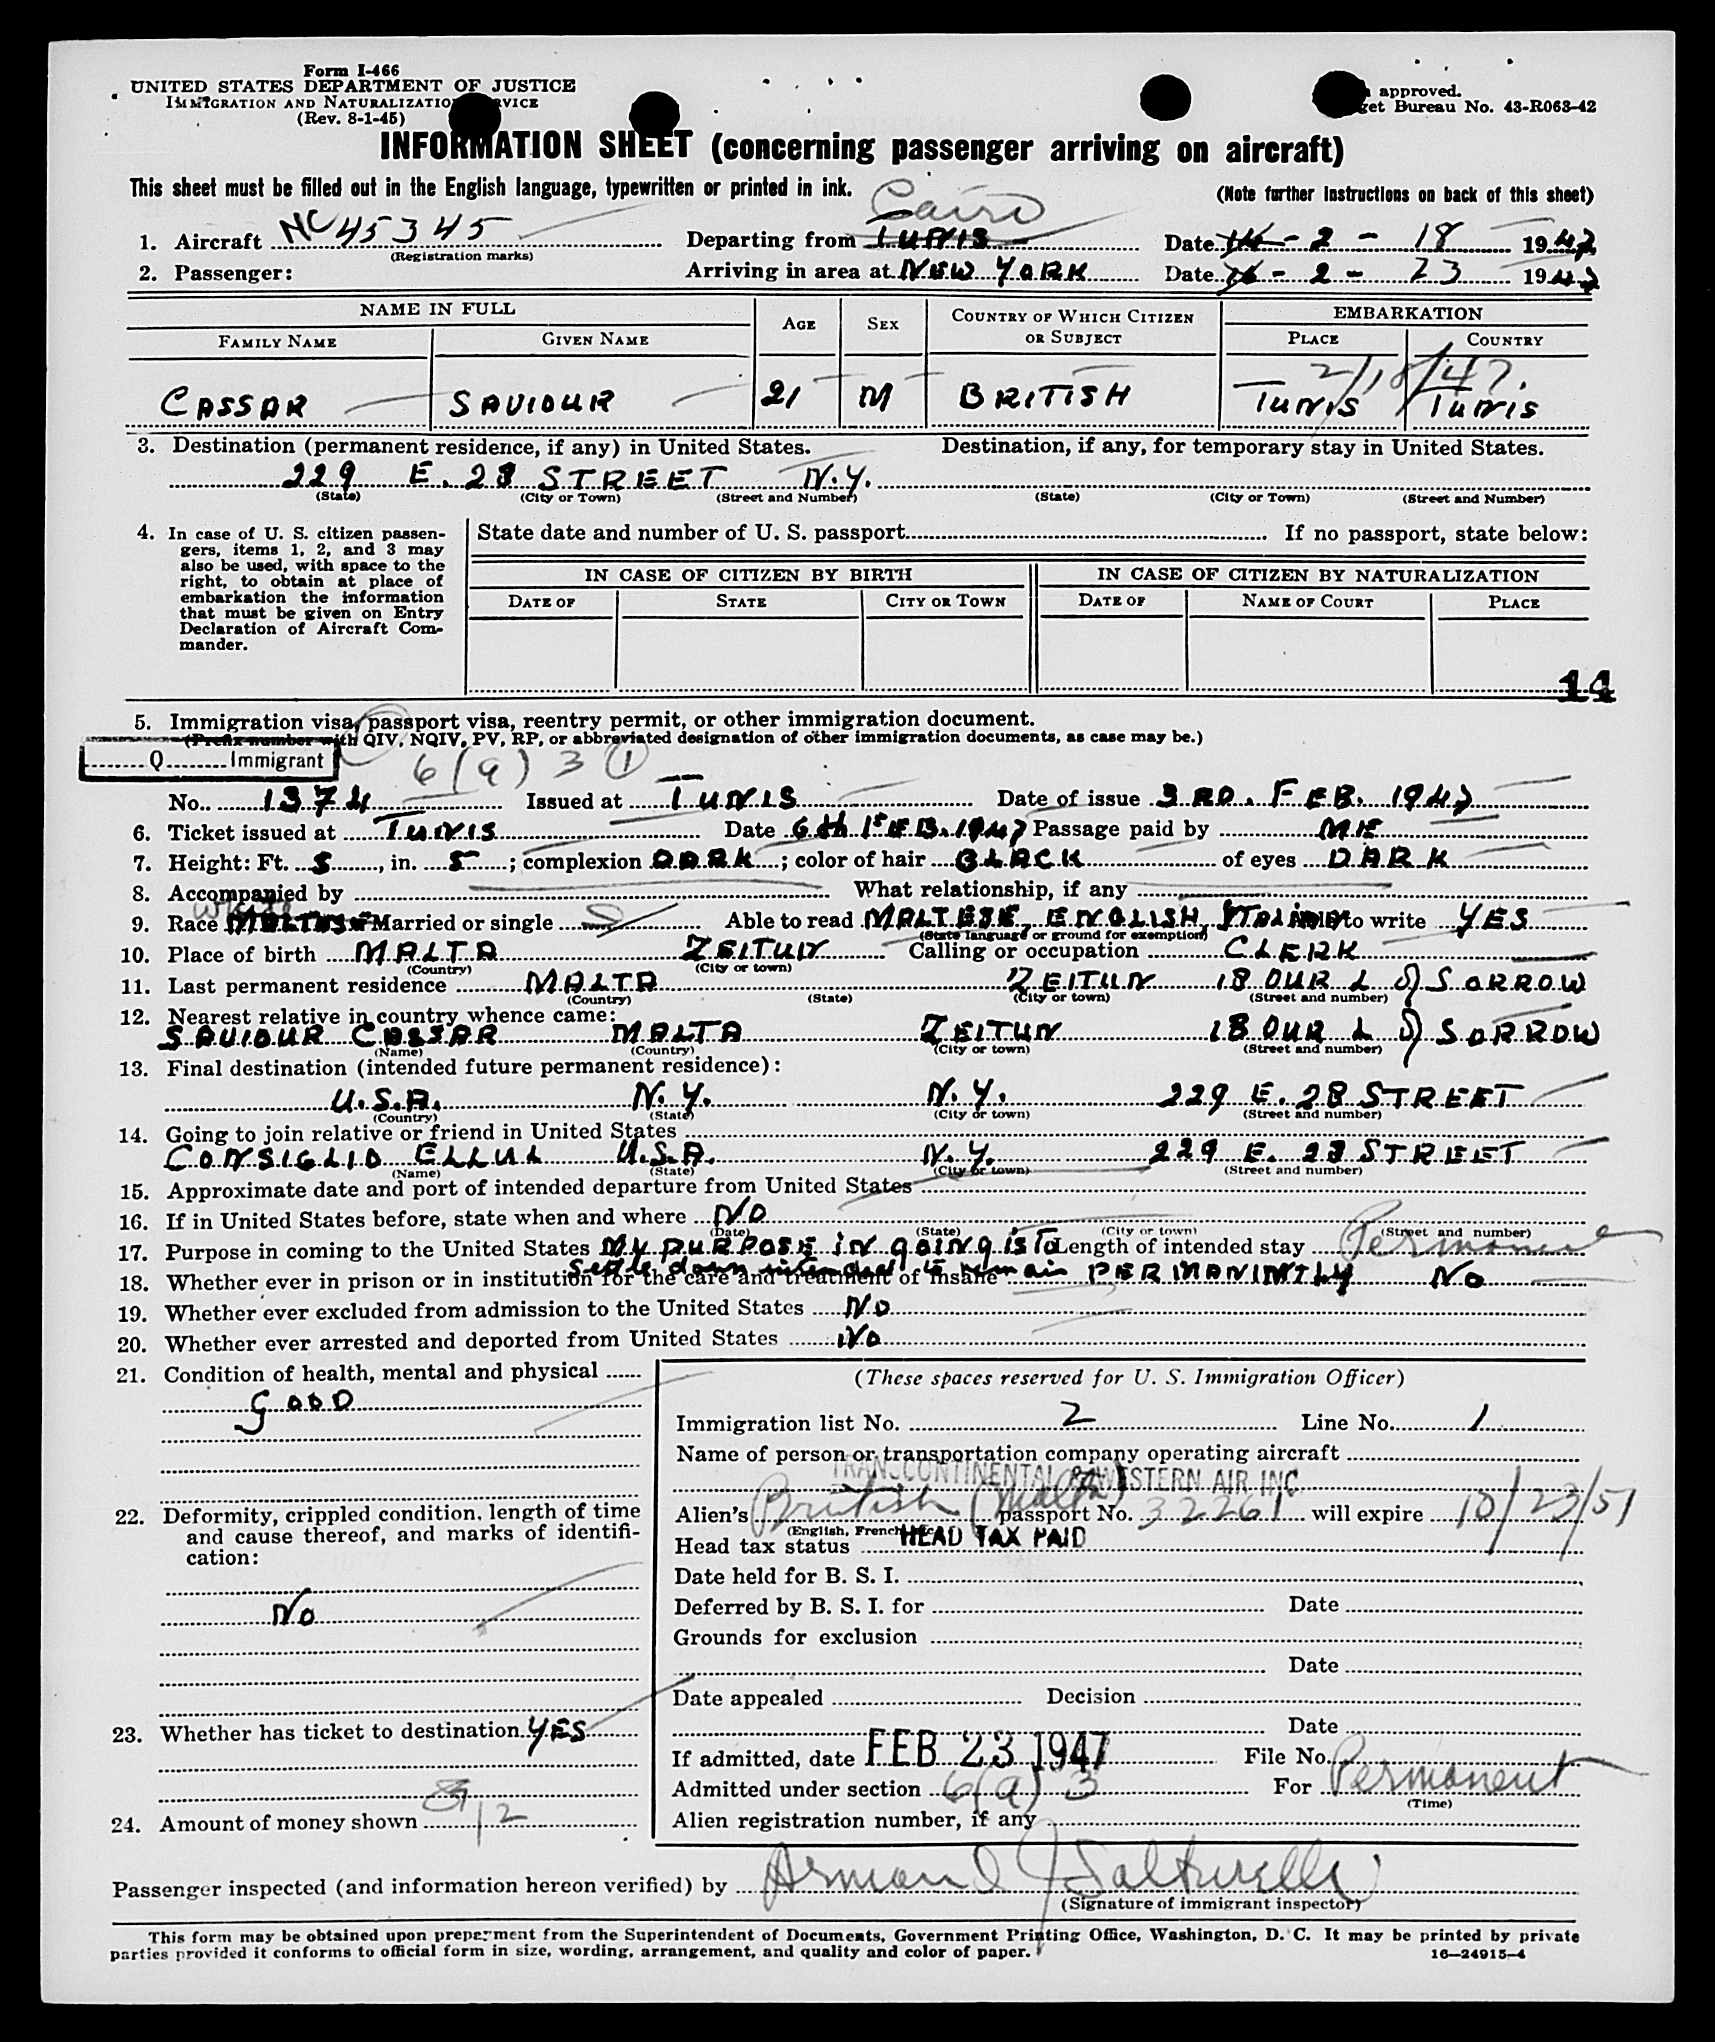 Form I-466
UNITED STATES DEPARTMENT OF JUSTICE
IMMIGRATION AND NATURALIZATION SERVICE
(Rev. 8-1-45)
approved.
Bureau No. 43-R063-42
INFORMATION SHEET (concerning passenger arriving on aircraft)
This sheet must be filled out in the English language, typewritten or printed in ink.
(Note further instructions on back of this sheet)
Cairo
1. Aircraft NC 45345 Departing from TUNIS Date 14 - 2 - 18 1947
(Registration marks)
2. Passenger: Arriving in area at NEW YORK Date - 2 - 23 1947
NAME IN FULL AGE SEX COUNTRY OF WHICH CITIZEN OR SUBJECT EMBARKATION
FAMILY NAME GIVEN NAME PLACE COUNTRY
2/18/47.
CASSAR SAVIOUR 21 M BRITISH TUNIS TUNIS
3. Destination (permanent residence, if any) in United States. Destination, if any, for temporary stay in United States.
229 E. 28 STREET N.Y.
(State) (City or Town) (Street and Number) (State) (City or Town) (Street and Number)
4. In case of U. S. citizen passengers, items 1, 2, and 3 may also be used, with space to the right, to obtain at place of embarkation the information that must be given on Entry Declaration of Aircraft Commander.
State date and number of U. S. passport If no passport, state below:
IN CASE OF CITIZEN BY BIRTH IN CASE OF CITIZEN BY NATURALIZATION
DATE OF STATE CITY OR TOWN DATE OF NAME OF COURT PLACE
14
5. Immigration visa, passport visa, reentry permit, or other immigration document.
(Prefix number with QIV, NQIV, PV, RP, or abbreviated designation of other immigration documents, as case may be.)
Q Immigrant 6(a)3 1
No. 1374 Issued at TUNIS Date of issue 3RD. FEB. 1947
6. Ticket issued at TUNIS Date 6th FEB. 1947 Passage paid by ME
7. Height: Ft. 5, in. 5; complexion DARK; color of hair BLACK of eyes DARK
8. Accompanied by What relationship, if any
White
9. Race MALTESE Married or single S Able to read MALTESE, ENGLISH, ITALIAN to write YES
(State language or ground for exemption)
10. Place of birth MALTA ZEITUN Calling or occupation CLERK
(Country) (City or town)
11. Last permanent residence MALTA ZEITUN 18 OUR L of SORROW
(Country) (State) (City or town) (Street and number)
12. Nearest relative in country whence came:
SAVIOUR CASSAR MALTA ZEITUN 18 OUR L of SORROW
(Name) (Country) (City or town) (Street and number)
13. Final destination (intended future permanent residence):
U.S.A. N.Y. N.Y. 229 E. 28 STREET
(Country) (State) (City or town) (Street and number)
14. Going to join relative or friend in United States
CONSIGLIO ELLUL U.S.A. N.Y. 229 E. 28 STREET
(Name) (State) (City or town) (Street and number)
15. Approximate date and port of intended departure from United States
16. If in United States before, state when and where NO
(Date) (State) (City or town) (Street and number)
17. Purpose in coming to the United States MY PURPOSE in going is To Length of intended stay Permanent
settle down intended to remain PERMANINTLY
18. Whether ever in prison or in institution for the care and treatment of insane NO
19. Whether ever excluded from admission to the United States NO
20. Whether ever arrested and deported from United States NO
21. Condition of health, mental and physical
GOOD
22. Deformity, crippled condition, length of time and cause thereof, and marks of identification:
NO
23. Whether has ticket to destination YES
24. Amount of money shown $12
(These spaces reserved for U. S. Immigration Officer)
Immigration list No. 2 Line No. 1
Name of person or transportation company operating aircraft
TRANSCONTINENTAL & WESTERN AIR INC.
Alien's British (Malta) passport No. 32261 will expire 10/23/51
(English, French, etc.)
Head tax status HEAD TAX PAID
Date held for B. S. I.
Deferred by B. S. I. for Date
Grounds for exclusion
Date
Date appealed Decision
Date
If admitted, date FEB 23 1947 File No.
Admitted under section 6(a)3 For Permanent
(Time)
Alien registration number, if any
Passenger inspected (and information hereon verified) by Armand J
(Signature of immigrant inspector)
This form may be obtained upon prepayment from the Superintendent of Documents, Government Printing Office, Washington, D. C. It may be printed by private
parties provided it conforms to official form in size, wording, arrangement, and quality and color of paper.
16—24915-4